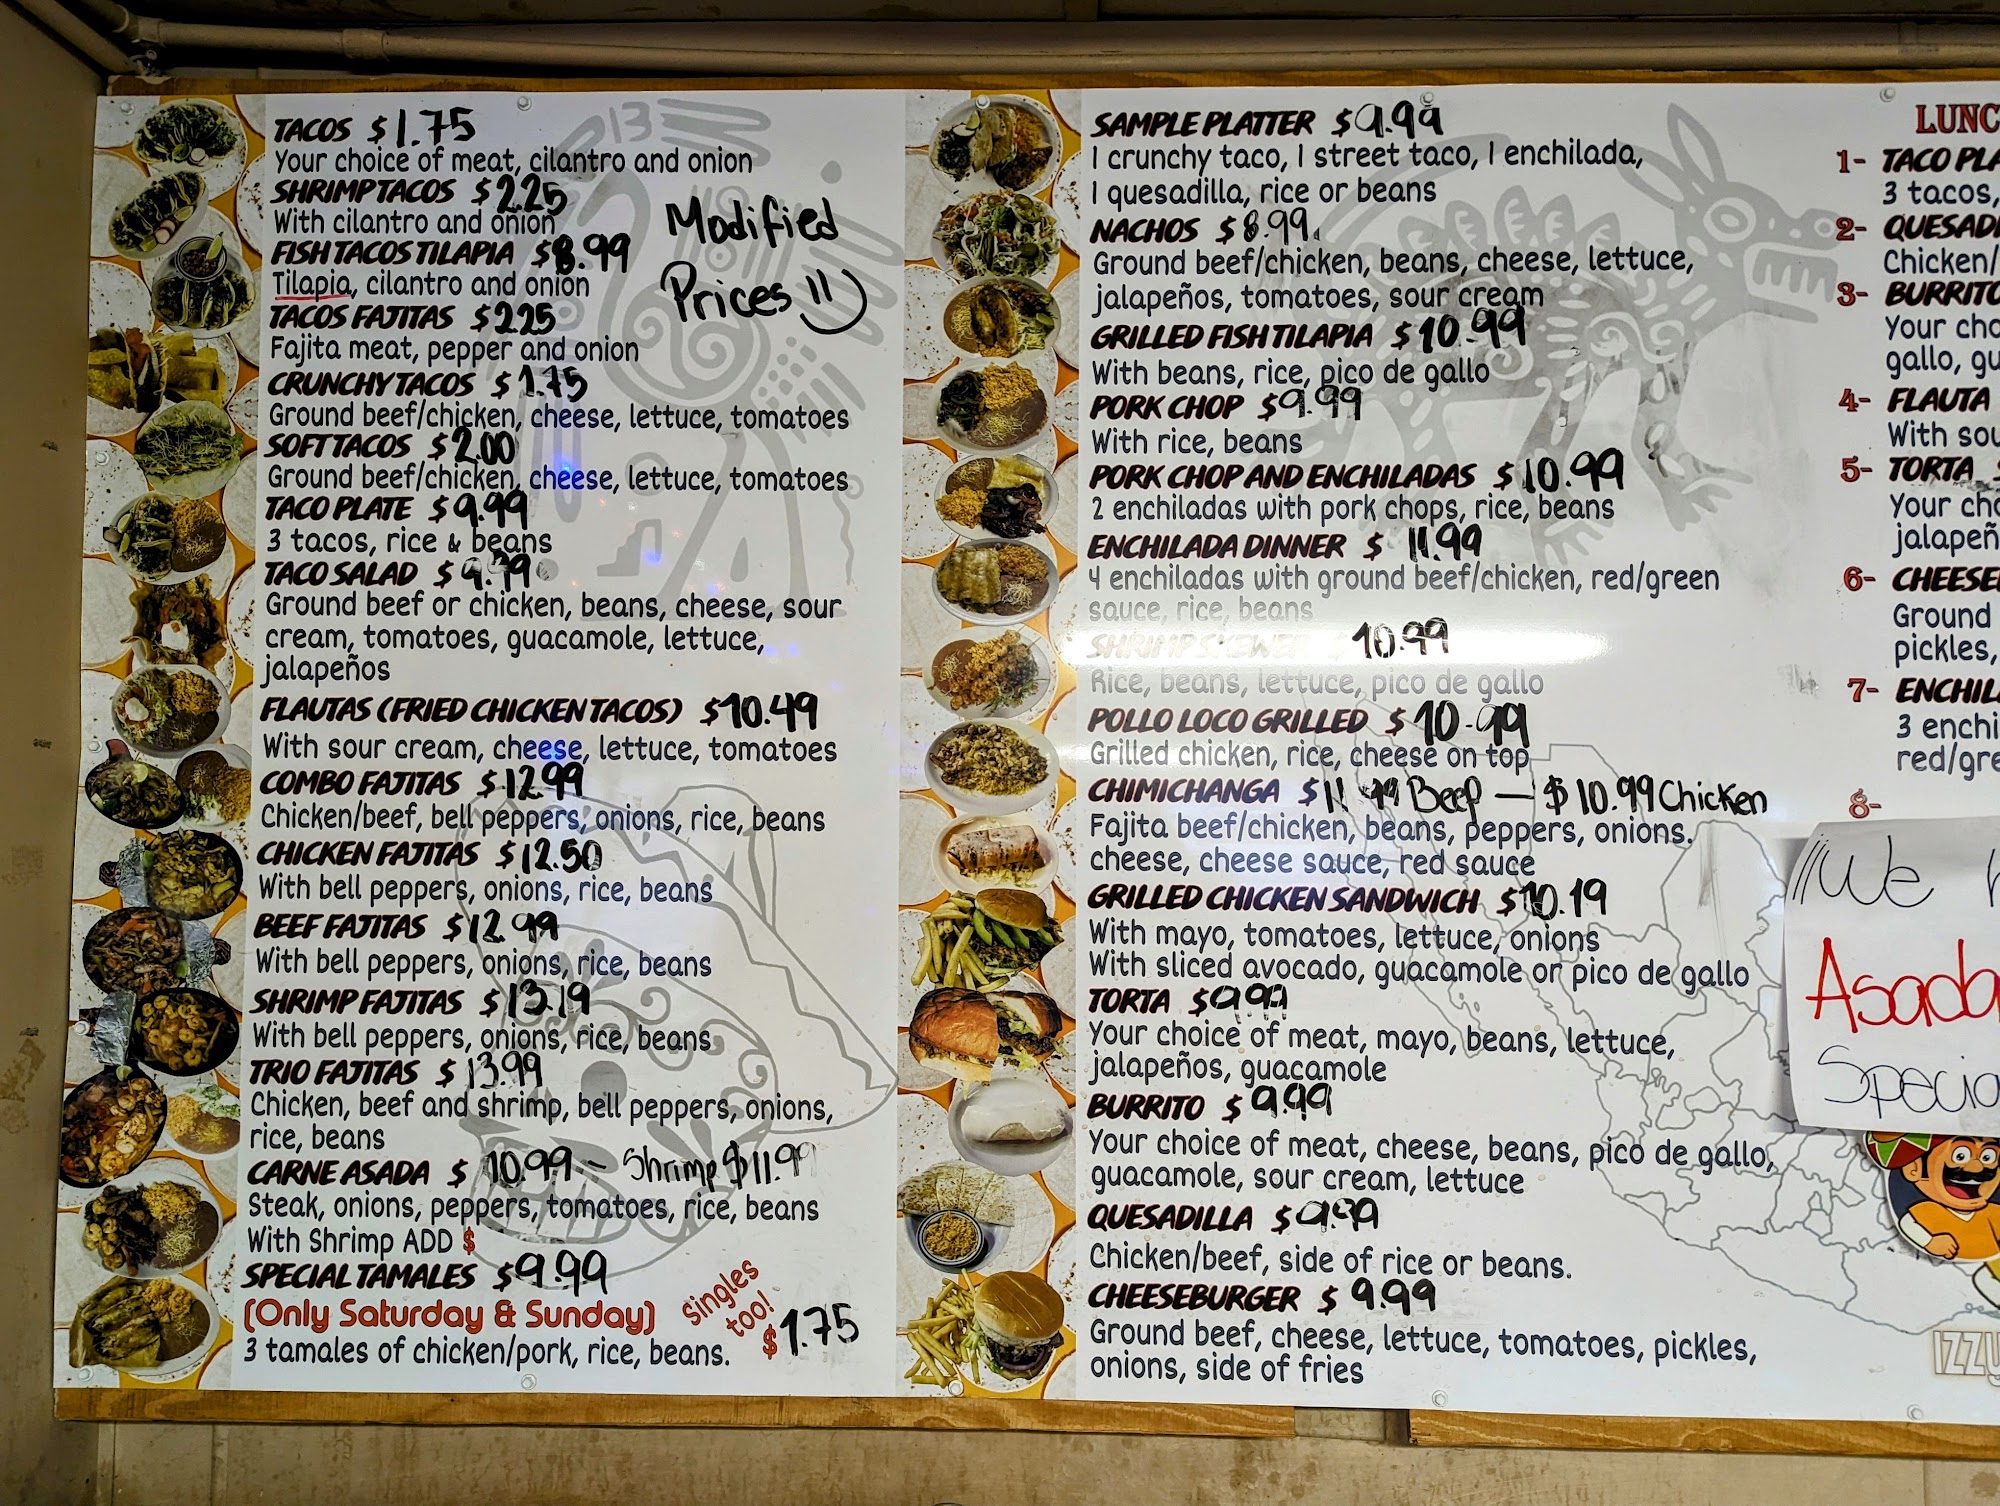 TACOS $1.75
Your choice of meat, cilantro and onion
SHRIMP TACOS $2.25
With cilantro and onion
FISH TACOS TILAPIA $8.99
Tilapia, cilantro and onion
TACOS FAJITAS $2.25
Fajita meat, pepper and onion
CRUNCHY TACOS $1.75
Ground beef/chicken, cheese, lettuce, tomatoes
SOFT TACOS $2.00
Ground beef/chicken, cheese, lettuce, tomatoes
TACO PLATE $9.99
3 tacos, rice & beans
TACO SALAD $9.99
Ground beef or chicken, beans, cheese, sour
cream, tomatoes, guacamole, lettuce,
jalapeños
FLAUTAS (FRIED CHICKEN TACOS) $10.49
With sour cream, cheese, lettuce, tomatoes
COMBO FAJITAS $12.99
Chicken/beef, bell peppers, onions, rice, beans
CHICKEN FAJITAS $12.50
With bell peppers, onions, rice, beans
BEEF FAJITAS $12.99
With bell peppers, onions, rice, beans
SHRIMP FAJITAS $13.19
With bell peppers, onions, rice, beans
TRIO FAJITAS $13.99
Chicken, beef and shrimp, bell peppers, onions,
rice, beans
CARNE ASADA $10.99 - Shrimp $11.99
Steak, onions, peppers, tomatoes, rice, beans
With Shrimp ADD $
SPECIAL TAMALES $9.99
(Only Saturday & Sunday)
3 tamales of chicken/pork, rice, beans.
singles
too!
$1.75
Modified
Prices
SAMPLE PLATTER $9.99
1 crunchy taco, 1 street taco, 1 enchilada,
1 quesadilla, rice or beans
NACHOS $8.99
Ground beef/chicken, beans, cheese, lettuce,
jalapeños, tomatoes, sour cream
GRILLED FISH TILAPIA $10.99
With beans, rice, pico de gallo
PORK CHOP $9.99
With rice, beans
PORK CHOP AND ENCHILADAS $10.99
2 enchiladas with pork chops, rice, beans
ENCHILADA DINNER $11.99
4 enchiladas with ground beef/chicken, red/green
sauce, rice, beans
SHRIMP SKEWER $10.99
Rice, beans, lettuce, pico de gallo
POLLO LOCO GRILLED $10.99
Grilled chicken, rice, cheese on top
CHIMICHANGA $11.99 Beef - $10.99 Chicken
Fajita beef/chicken, beans, peppers, onions.
cheese, cheese sauce, red sauce
GRILLED CHICKEN SANDWICH $10.19
With mayo, tomatoes, lettuce, onions
With sliced avocado, guacamole or pico de gallo
TORTA $9.99
Your choice of meat, mayo, beans, lettuce,
jalapeños, guacamole
BURRITO $9.99
Your choice of meat, cheese, beans, pico de gallo,
guacamole, sour cream, lettuce
QUESADILLA $9.99
Chicken/beef, side of rice or beans.
CHEESEBURGER $9.99
Ground beef, cheese, lettuce, tomatoes, pickles,
onions, side of fries
LUNC
1- TACO PLA
3 tacos,
2- QUESADI
Chicken/
3- BURRITO
Your cho
gallo, gu
4- FLAUTA
With sou
5- TORTA $
Your cho
jalapeñ
6- CHEESEB
Ground
pickles,
7- ENCHIL
3 enchi
red/gre
8-
We
Asada
Specia
IZZY